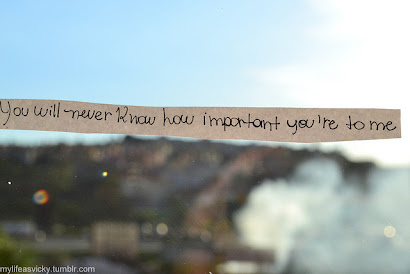 You will never know how important you're to me
mylifeasvicky.tumblr.com